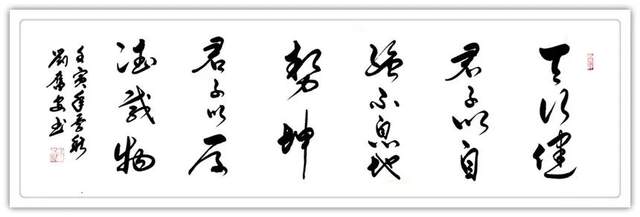 天行健
君子以自
强不息地
勢坤
君子以厚
德載物
壬寅年秋
劉安书